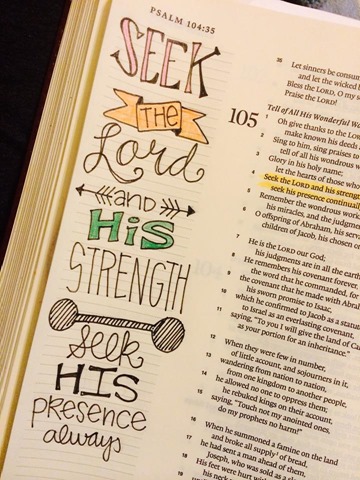 PSALM 104:35
SEEK
THE
Lord
and
HiS
STRENGTH
Seek
HIS
presence
always
35 Let sinners be consu
and let the wicked b
Bless the LORD, O my s
Praise the LORD!
Tell of All His Wonderful Wo
105
1 Oh give thanks to the LOR
make known his deeds a
2 Sing to him, sing praises t
tell of all his wondrous w
3 Glory in his holy name;
let the hearts of those wh
4 Seek the LORD and his strengt
seek his presence continuall
5 Remember the wondrous wor
his miracles, and the judgme
6 O offspring of Abraham, his serv
children of Jacob, his chosen o
7 He is the LORD our God;
his judgments are in all the eart
8 He remembers his covenant forever,
the word that he commanded, for
9 the covenant that he made with Abrah
his sworn promise to Isaac,
10 which he confirmed to Jacob as a statu
to Israel as an everlasting covenant,
11 saying, "To you I will give the land of Ca
as your portion for an inheritance."
12 When they were few in number,
of little account, and sojourners in it,
13 wandering from nation to nation,
from one kingdom to another people,
14 he allowed no one to oppress them;
he rebuked kings on their account,
15 saying, "Touch not my anointed ones,
do my prophets no harm!"
16 When he summoned a famine on the land
and broke all supply of bread,
17 he had sent a man ahead of them,
Joseph, who was sold as a
18 His feet were hurt with
his neck
19